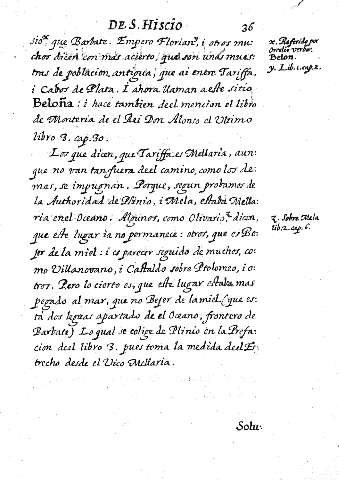 DE S. HISCIO 36
sioˣ. que Barbate. Empero Florianʸ, i otros mu-
chos dicen con mas acierto, que son unas mues-
tras de poblacion antigua, que ai entre Tariffa,
i Cabos de Plata. I ahora llaman a este sitio
Beloña: i hace tambien deel mencion el libro
de Monteria de el Rei Don Alonso el Ultimo
libro 3. cap. 30.
Los que dicen, que Tariffa es Mellaria, aun-
que no van tan fuera deel camino, como los de-
mas, se impugnan. Porque, segun probamos de
la Authoridad de Plinio, i Mela, estabi Mella-
ria en el Oceano. Algunos, como Olivarioᶻ. dicen,
que este lugar ia no permanece: otros, que es Be-
jer de la miel: i es parecer seguido de muchos, co-
mo Villanovano, i Castaldo sobre Ptolomeo, i o-
tros. Pero lo cierto es, que este lugar estaba mas
pegado al mar, que no Bejer de la miel, (que es-
ta dos leguas apartado de el Oceano, frontero de
Barbate) Lo qual se colige de Plinio en la Prefa-
cion deel libro 3. pues toma la medida deel Es-
trecho desde el Vico Mellaria.
Solu-
x. Referido por
Ortelio verbo:
Belon.
y. Lib. 1. cap. 2.
z. Sobre Mela
lib. 2. cap. 6.